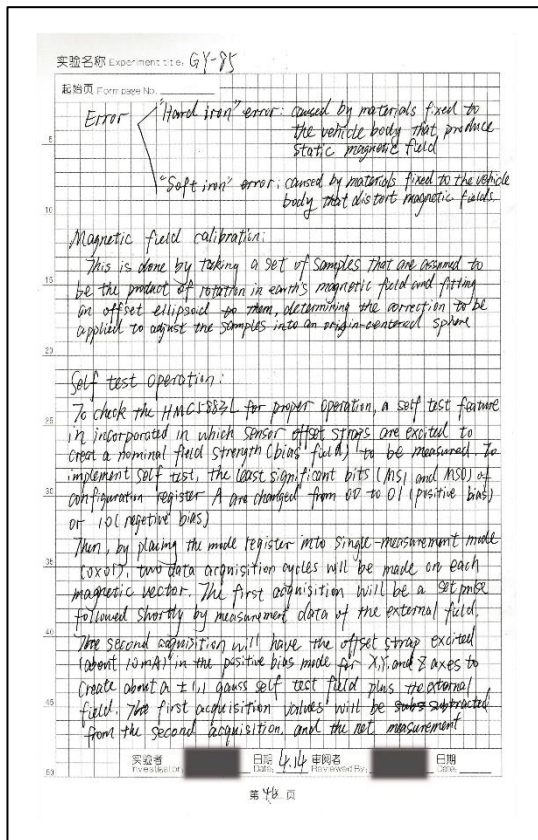 实验名称 Experiment title: GY-85
起始页 Form page No.
Error
"Hard iron" error: caused by materials fixed to
the vehicle body that produce
static magnetic field
5
"Soft iron" error: caused by materials fixed to the vehicle
body that distort magnetic fields.
10
Magnetic field calibration:
This is done by taking a set of samples that are assumed to
15
be the product of rotation in earth's magnetic field and fitting
an offset ellipsoid to them, determining the correction to be
applied to adjust the samples into an origin-centered sphere
20
Self test operation:
To check the HMC5883L for proper operation, a self test feature
25
in incorporated in which sensor offset straps are excited to
creat a nominal field strength (bias field) to be measured. To
implement self test, the least significant bits (MS1 and MS0) of
30
configuration register A are changed from 00 to 01 (positive bias)
or 10 (negetive bias)
Then, by placing the mode register into single-measurement mode
35
(0x01), two data acquisition cycles will be made on each
magnetic vector. The first acquisition will be a set pulse
followed shortly by measurement data of the external field.
40
The second acquisition will have the offset strap excited
(about 10mA) in the positive bias mode for X, Y, and Z axes to
create about a ±1.1 gauss self test field plus the external
45
field. The first acquisition values will be subtracted
from the second acquisition, and the net measurement
50
实验者
Investigator:
日期 4.14
Date:
审阅者
Reviewed By:
日期
Date:
第 46 页